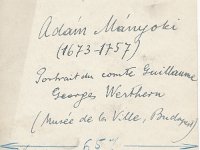 Adám Mányoki
(1673-1757)
Portrait du comte Guillaume
Georges Werthern
(Musée de la Ville, Budapest)
65%